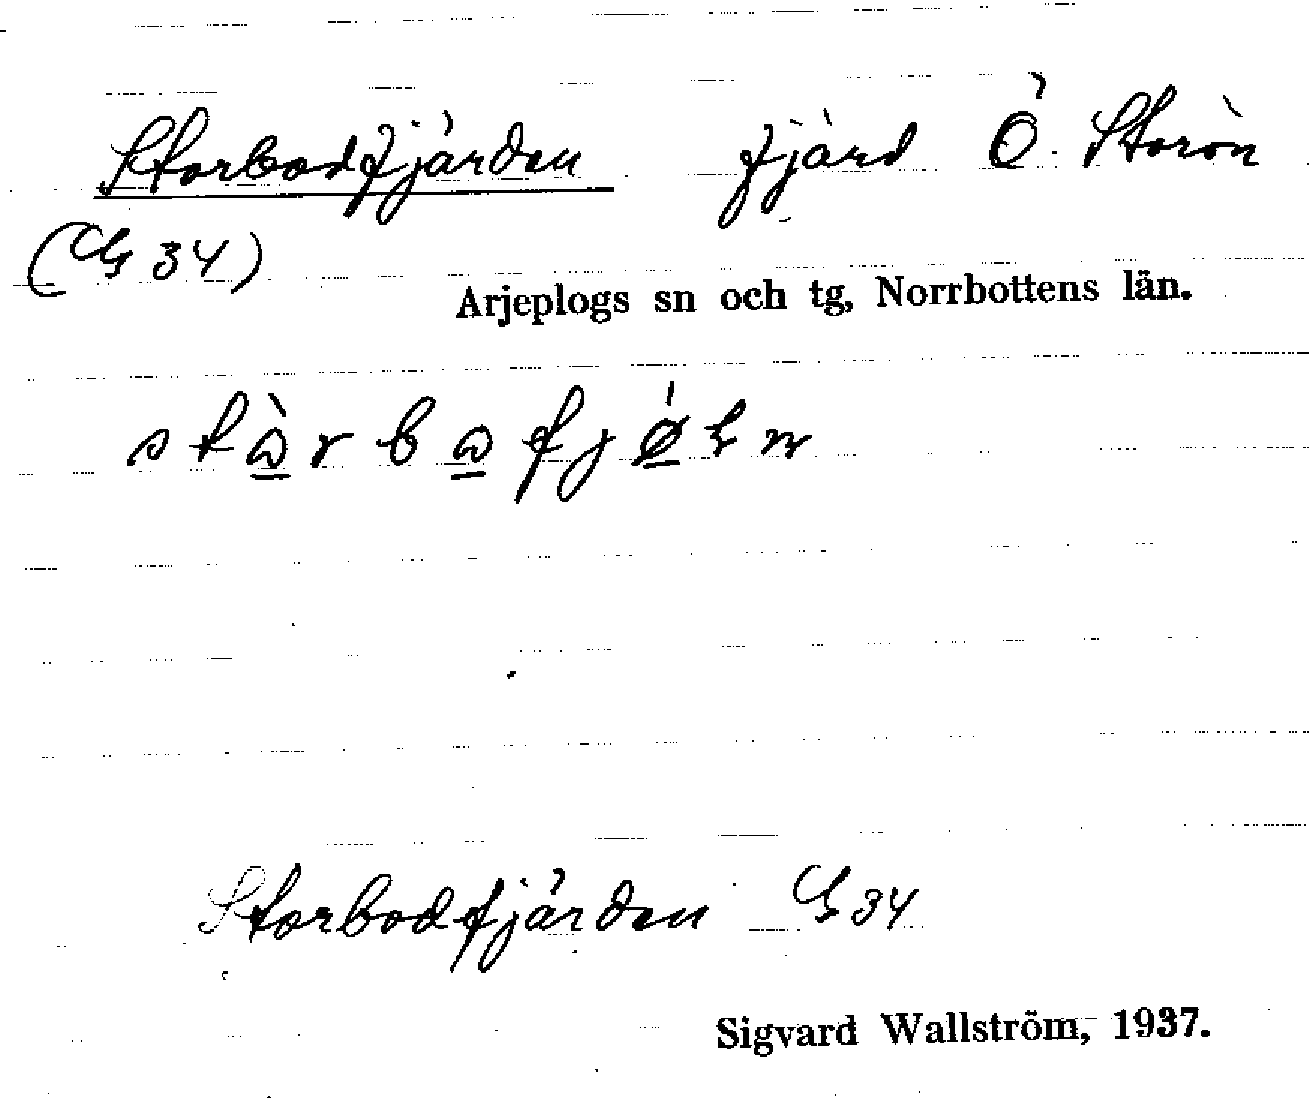 Storbodfjärden fjärd Ö. Storön
(G 34)
Arjeplogs sn och tg, Norrbottens län.
Storbodfjärden G 34
Sigvard Wallström, 1937.